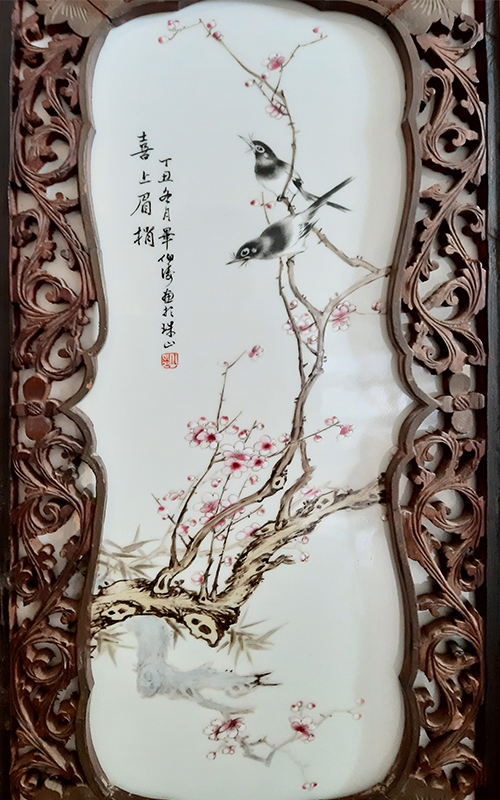 喜上眉梢
丁丑冬月畢伯濤画於珠山